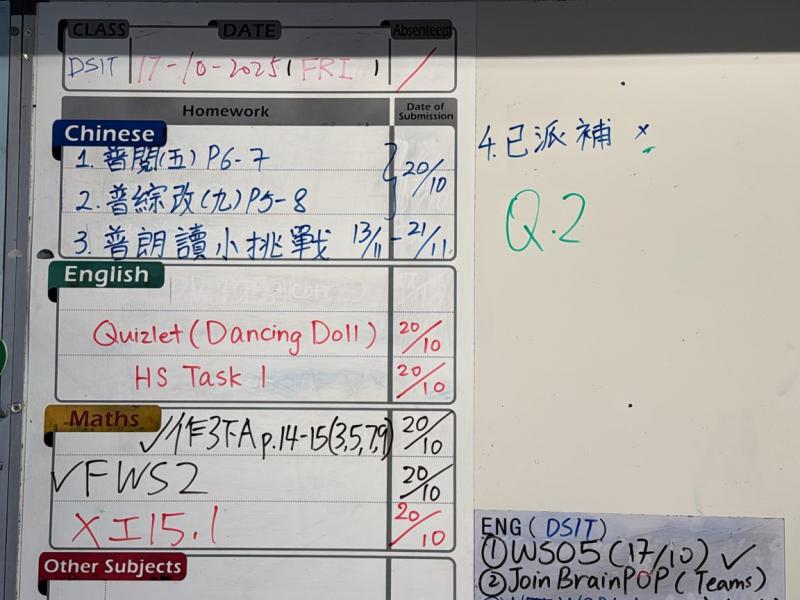 CLASS DATE Absentee(s)
DSIT 17-10-2025 (FRI) /
Homework Date of Submission
Chinese
1. 普閱(五) P6-7
2. 普綜改(九) P5-8 20/10
3. 普朗讀小挑戰 13/11 - 21/11
4. 已派補 x
Q.2
English
Quizlet (Dancing Doll) 20/10
HS Task 1 20/10
Maths
✓作3下A p.14-15(3,5,7,9) 20/10
✓FWS2 20/10
X工15.1 20/10
Other Subjects
ENG (DSIT)
① WS05 (17/10) ✓
② Join BrainPOP (Teams)